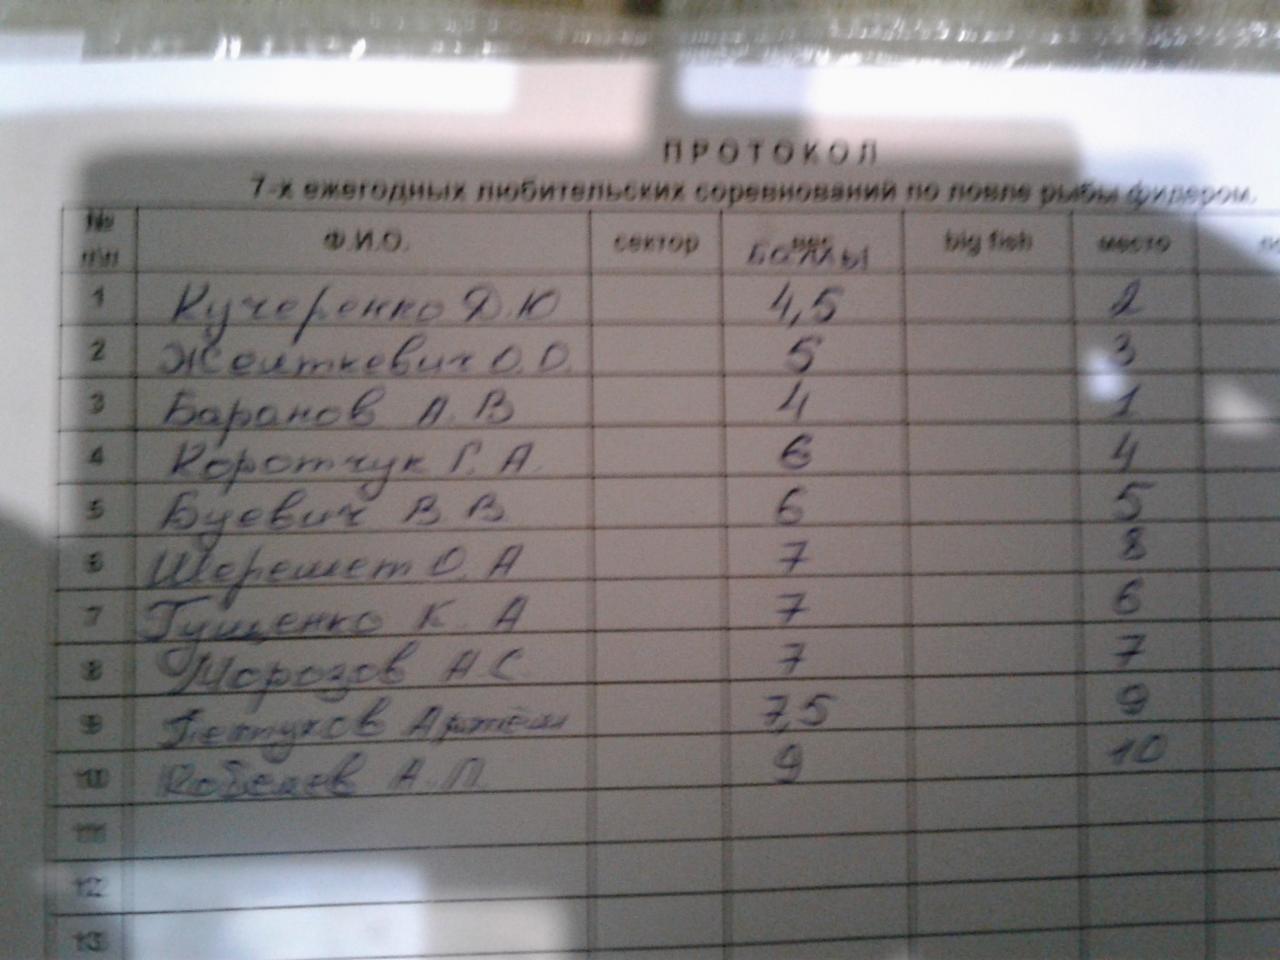 ПРОТОКОЛ
7-х ежегодных любительских соревнований по ловле рыбы фидером.
№ п\п Ф.И.О. сектор вес Баллы big fish место
1 Кучеренко Д.Ю 4,5 2
2 Желткевич О.О. 5 3
3 Баранов А.В 4 1
4 Коротчук Г.А. 6 4
5 Буевич В В 6 5
6 Шерешет О.А 7 8
7 Гущенко К.А 7 6
8 Морозов А С 7 7
9 Петухов Артём 7,5 9
10 Кобелев А.П. 9 10
11
12
13